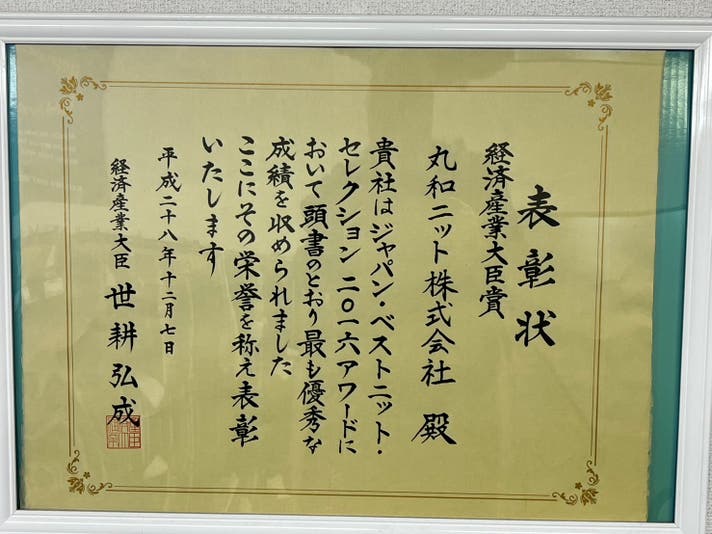 表彰状
経済産業大臣賞
丸和ニット株式会社 殿
貴社はジャパン・ベストニット・
セレクション二〇一六アワードに
おいて頭書のとおり最も優秀な
成績を収められました
ここにその栄誉を称え表彰
いたします
平成二十八年十二月七日
経済産業大臣 世耕弘成